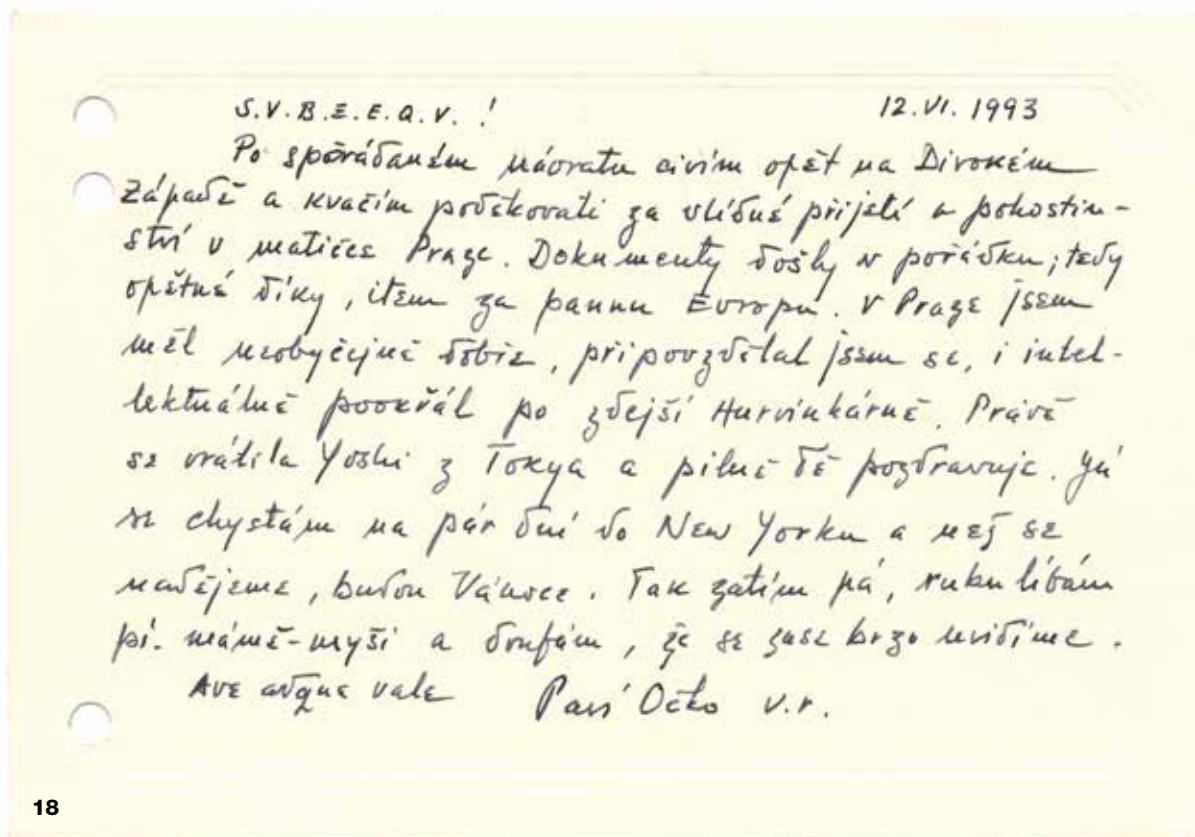 S.V.B.E.E.Q.V. !
12.VI.1993
Po spořádaném návratu civím opět na Divokém
Západě a kvačím poděkovati za vlídné přijetí a pohostin-
ství v matičce Praze. Dokumenty došly v pořádku; tedy
opětné díky, item za pannu Evropu. V Praze jsem
měl neobyčejně dobře, připovzdělal jsem se, i intel-
lektuálně pookřál po zdejší Hurvínkárně. Právě
se vrátila Yoshi z Tokya a pilně Tě pozdravuje. Já
se chystám na pár dní do New Yorku a než se
nadějeme, budou Vánoce. Tak zatím pá, ruku líbám
pí. mámě-myši a doufám, že se zase brzo uvidíme.
Ave atque vale
v.r.
18